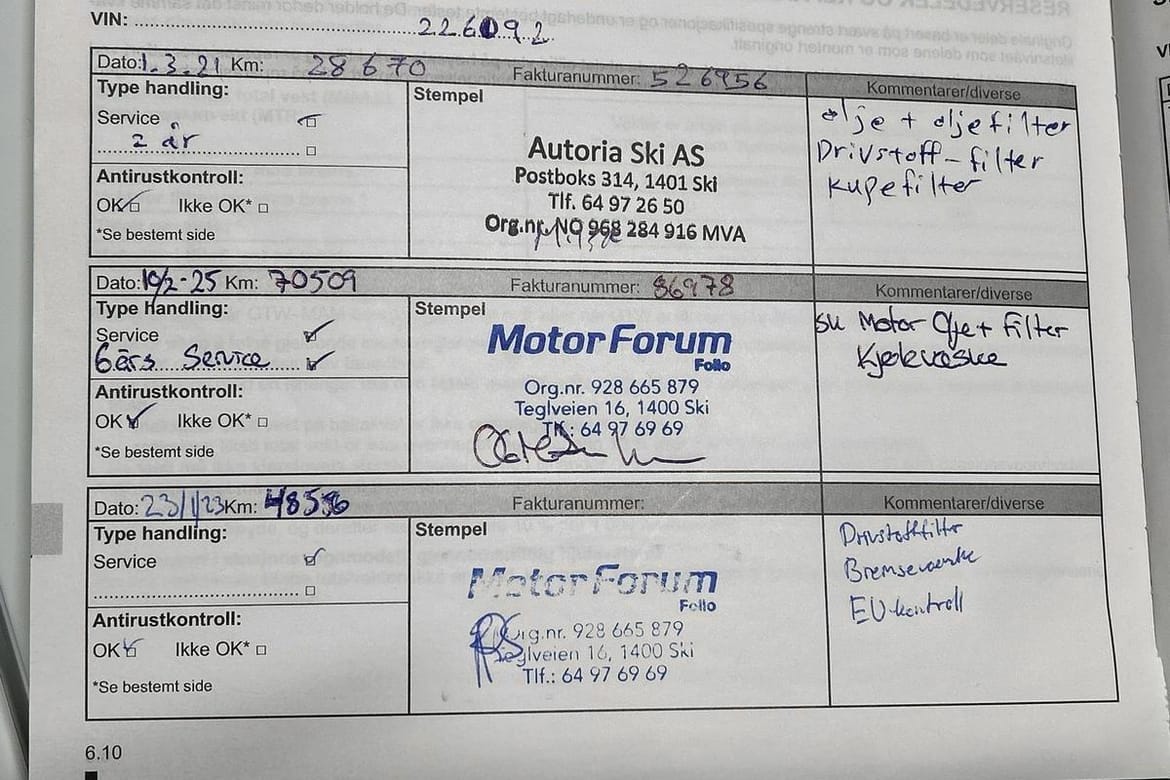 VIN: 226092
Dato: 1.3.21 Km: 28670 Fakturanummer: 526956 Kommentarer/diverse
Type handling:
Service
2 år
Antirustkontroll:
OK Ikke OK*
*Se bestemt side
Stempel
Autoria Ski AS
Postboks 314, 1401 Ski
Tlf. 64 97 26 50
Org.nr. NO 968 284 916 MVA
olje + oljefilter
Drivstoff-filter
kupefilter
Dato: 10/2-25 Km: 70509 Fakturanummer: 86978 Kommentarer/diverse
Type handling:
Service
6års Service
Antirustkontroll:
OK Ikke OK*
*Se bestemt side
Stempel
MotorForum
Follo
Org.nr. 928 665 879
Teglveien 16, 1400 Ski
Tlf.: 64 97 69 69
Motor Olje + Filter
Kjølevæske
Dato: 23/1/23 Km: Fakturanummer: Kommentarer/diverse
Type handling:
Service
Antirustkontroll:
OK Ikke OK*
*Se bestemt side
Stempel
MotorForum
Follo
Org.nr. 928 665 879
Teglveien 16, 1400 Ski
Tlf.: 64 97 69 69
Drivstoffilter
Bremsevæske
EU-kontroll
6.10